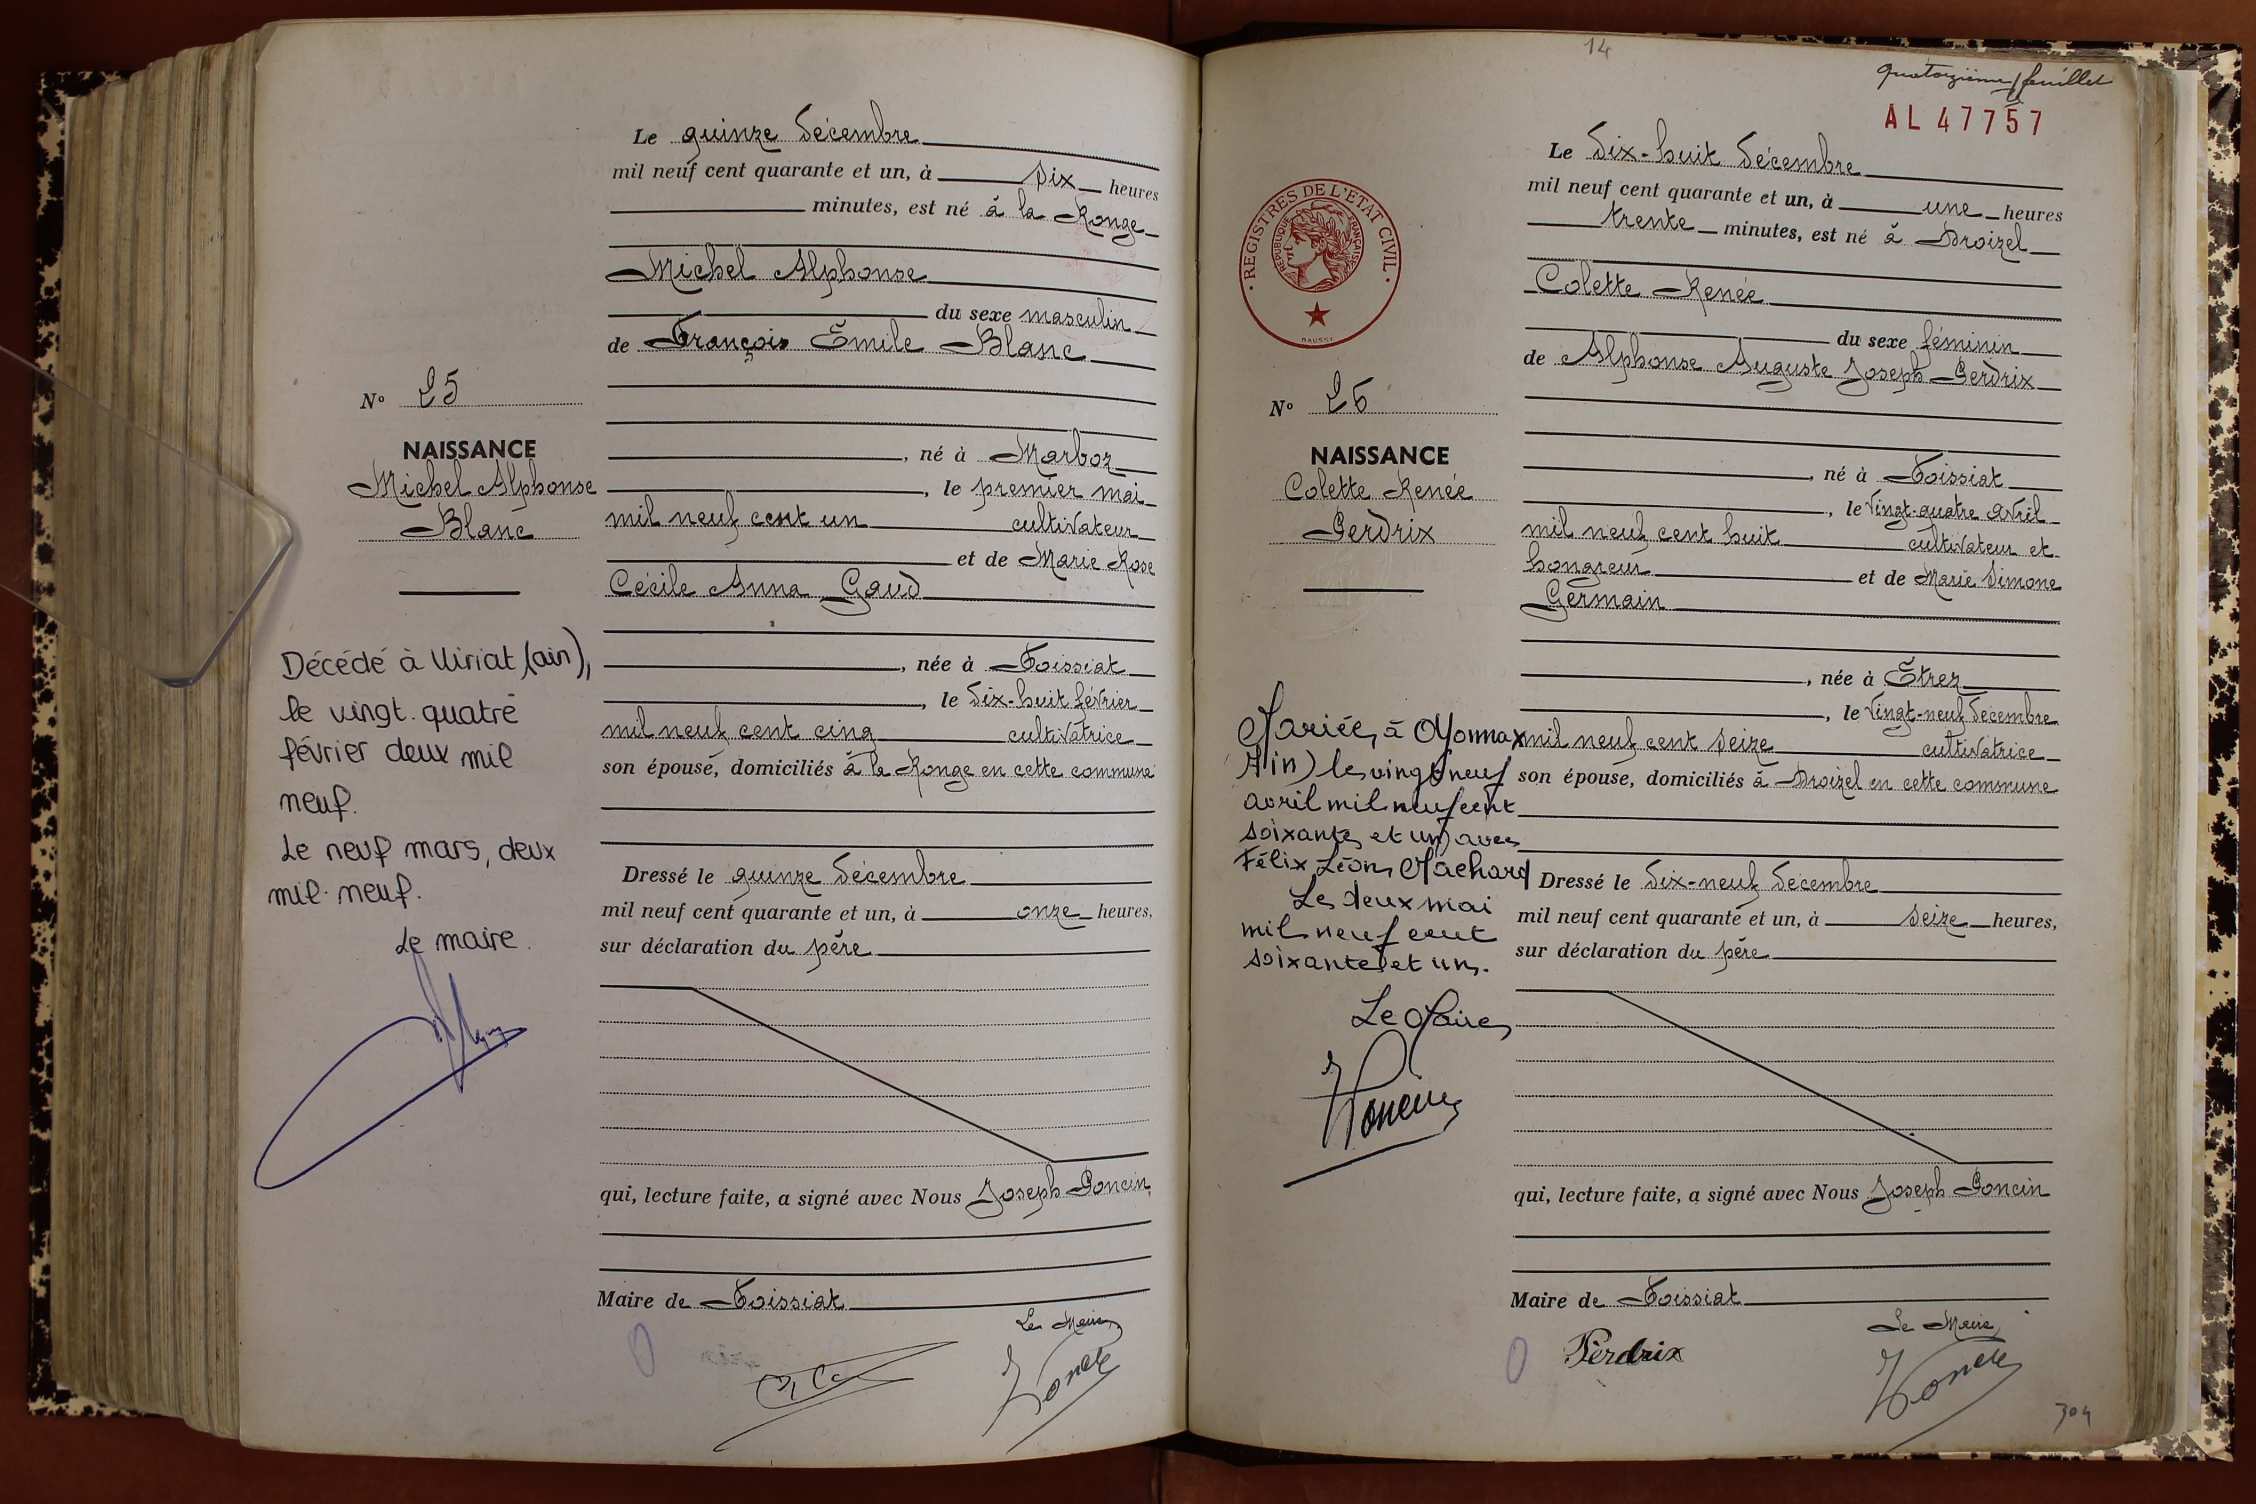 Le quinze décembre
mil neuf cent quarante et un, à six heures
minutes, est né à la Ronge
Michel Alphonse
du sexe masculin
de François Emile Blanc
N° 25
NAISSANCE
Michel Alphonse
Blanc
, né à Marboz
, le premier mai
mil neuf cent un cultivateur
et de Marie Rose
Cécile Anna Gaud
, née à Foissiat
, le dix-huit février
mil neuf cent cinq cultivatrice
son épouse, domiciliés à la Ronge en cette commune
Décédé à Viriat (ain),
le vingt-quatre
février deux mil
neuf.
Le neuf mars, deux
mil neuf.
Le maire.
Dressé le quinze décembre
mil neuf cent quarante et un, à onze heures,
sur déclaration du père
qui, lecture faite, a signé avec Nous Joseph Poncin
Maire de Foissiat
Le Maire
14
quatorzième feuillet
AL 47757
REGISTRES DE L'ETAT CIVIL
REPUBLIQUE FRANÇAISE
Le dix-huit décembre
mil neuf cent quarante et un, à une heures
trente minutes, est né à Droizel
Colette Renée
du sexe féminin
de Alphonse Auguste Joseph Perdrix
N° 26
NAISSANCE
Colette Renée
Perdrix
, né à Foissiat
, le vingt-quatre avril
mil neuf cent huit cultivateur et
hongreur et de Marie Simone
Germain
, née à Etrez
, le vingt-neuf décembre
mil neuf cent seize cultivatrice
son épouse, domiciliés à Droizel en cette commune
Mariée, à Oyonnax
Ain) le vingt neuf
avril mil neuf cent
soixante et un avec
Félix Léon Machard
Le deux mai
mil neuf cent
soixante et un.
Le Maire,
Poncin
Dressé le dix-neuf décembre
mil neuf cent quarante et un, à seize heures,
sur déclaration du père
qui, lecture faite, a signé avec Nous Joseph Poncin
Maire de Foissiat
Le Maire
Perdrix
Poncin
304